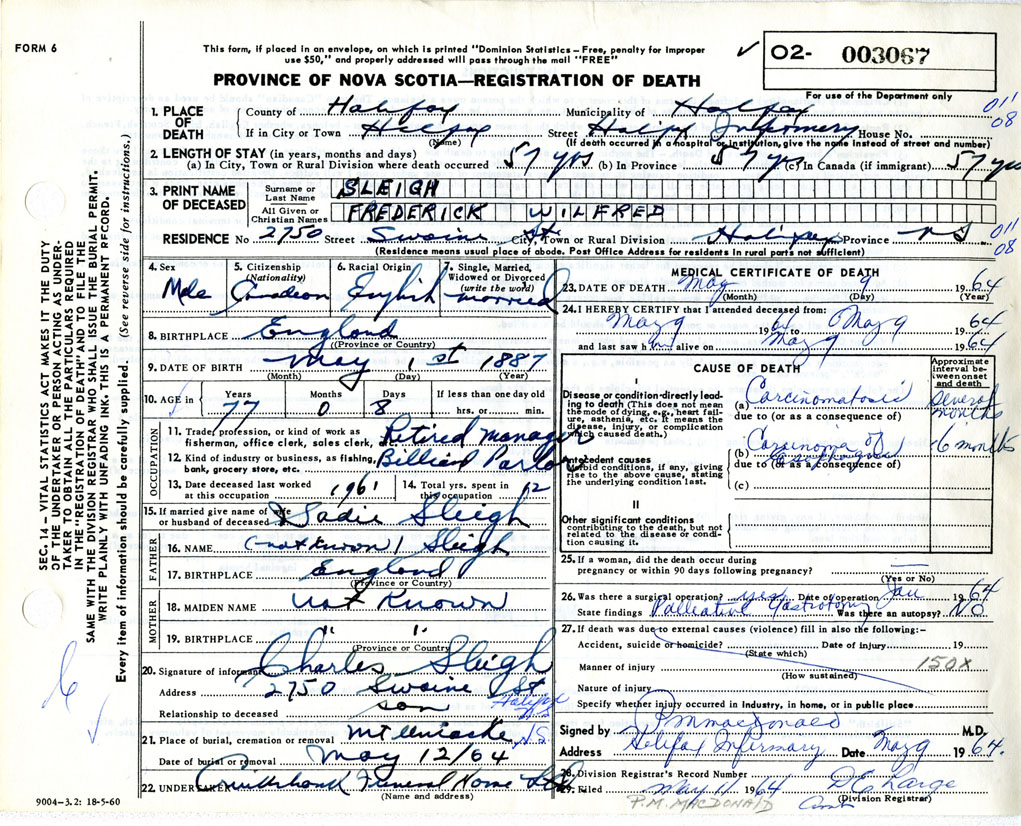 FORM 6
This form, if placed in an envelope, on which is printed "Dominion Statistics – Free, penalty for improper
use $50," and properly addressed will pass through the mail "FREE"
✓ 02- 003067
For use of the Department only
PROVINCE OF NOVA SCOTIA—REGISTRATION OF DEATH
1. PLACE OF DEATH
County of Halifax Municipality of Halifax 011' 08
If in City or Town Halifax Street Halifax Infirmary House No.
(Name) (If death occurred in a hospital or institution, give the name instead of street and number)
2. LENGTH OF STAY (in years, months and days)
(a) In City, Town or Rural Division where death occurred 57 yrs (b) In Province 57 yrs (c) In Canada (if immigrant) 57 yrs
3. PRINT NAME OF DECEASED
Surname or Last Name SLEIGH
All Given or Christian Names FREDERICK WILFRED
RESIDENCE No 2750 Street Swaine St City, Town or Rural Division Halifax Province NS 011' 08
(Residence means usual place of abode. Post Office Address for residents in rural parts not sufficient)
4. Sex Male
5. Citizenship (Nationality) Canadian
6. Racial Origin English
7. Single, Married, Widowed or Divorced (write the word) married
8. BIRTHPLACE England
(Province or Country)
9. DATE OF BIRTH May 1st 1887
(Month) (Day) (Year)
10. AGE in Years 77 Months 0 Days 8 If less than one day old hrs. or min.
OCCUPATION
11. Trade, profession, or kind of work as fisherman, office clerk, sales clerk, Retired manager
12. Kind of industry or business, as fishing, bank, grocery store, etc. Billiard Parlor
13. Date deceased last worked at this occupation 1961
14. Total yrs. spent in this occupation 12
15. If married give name of wife or husband of deceased Sadie Sleigh
FATHER
16. NAME (not known) Sleigh
17. BIRTHPLACE England
(Province or Country)
MOTHER
18. MAIDEN NAME Not Known
19. BIRTHPLACE " "
(Province or Country)
20. Signature of informant Charles Sleigh
Address 2750 Swaine St Halifax N.S.
Relationship to deceased son
21. Place of burial, cremation or removal Mt Uniacke, N.S.
Date of burial or removal May 12/64
22. UNDERTAKER Cruikshank Funeral Home Ltd.
(Name and address)
9004-3.2: 18-5-60
MEDICAL CERTIFICATE OF DEATH
23. DATE OF DEATH May 9 1964
(Month) (Day) (Year)
24. I HEREBY CERTIFY that I attended deceased from:
May 9 1964 to May 9 1964
and last saw him alive on May 9 1964
CAUSE OF DEATH
Approximate interval between onset and death
I
Disease or condition directly leading to death (This does not mean the mode of dying, e.g., heart failure, asthenia, etc. It means the disease, injury, or complication which caused death.)
(a) Carcinomatosis several months
due to (or as a consequence of)
Antecedent causes
Morbid conditions, if any, giving rise to the above cause, stating the underlying condition last.
(b) Carcinoma of Esophagus 6 months
due to (or as a consequence of)
(c)
II
Other significant conditions
contributing to the death, but not related to the disease or condition causing it.
25. If a woman, did the death occur during
pregnancy or within 90 days following pregnancy? —
(Yes or No)
26. Was there a surgical operation? yes Date of operation Jan 1964
State findings Palliative Gastrotomy Was there an autopsy? No
27. If death was due to external causes (violence) fill in also the following:-
Accident, suicide or homicide? Date of injury 19
(State which)
Manner of injury 150X
(How sustained)
Nature of injury
Specify whether injury occurred in industry, in home, or in public place
Signed by P M Macdonald M.D.
Address Halifax Infirmary Date May 9 1964.
28. Division Registrar's Record Number
29. Filed May 11 1964 D E Large
P.M. MACDONALD (Division Registrar)
SEC. 14— VITAL STATISTICS ACT MAKES IT THE DUTY
OF THE UNDERTAKER OR PERSON ACTING AS UNDER-
TAKER TO OBTAIN ALL THE PARTICULARS REQUIRED
IN THE "REGISTRATION OF DEATH" AND TO FILE THE
SAME WITH THE DIVISION REGISTRAR WHO SHALL ISSUE THE BURIAL PERMIT.
WRITE PLAINLY WITH UNFADING INK. THIS IS A PERMANENT RECORD.
Every item of information should be carefully supplied. (See reverse side for instructions.)